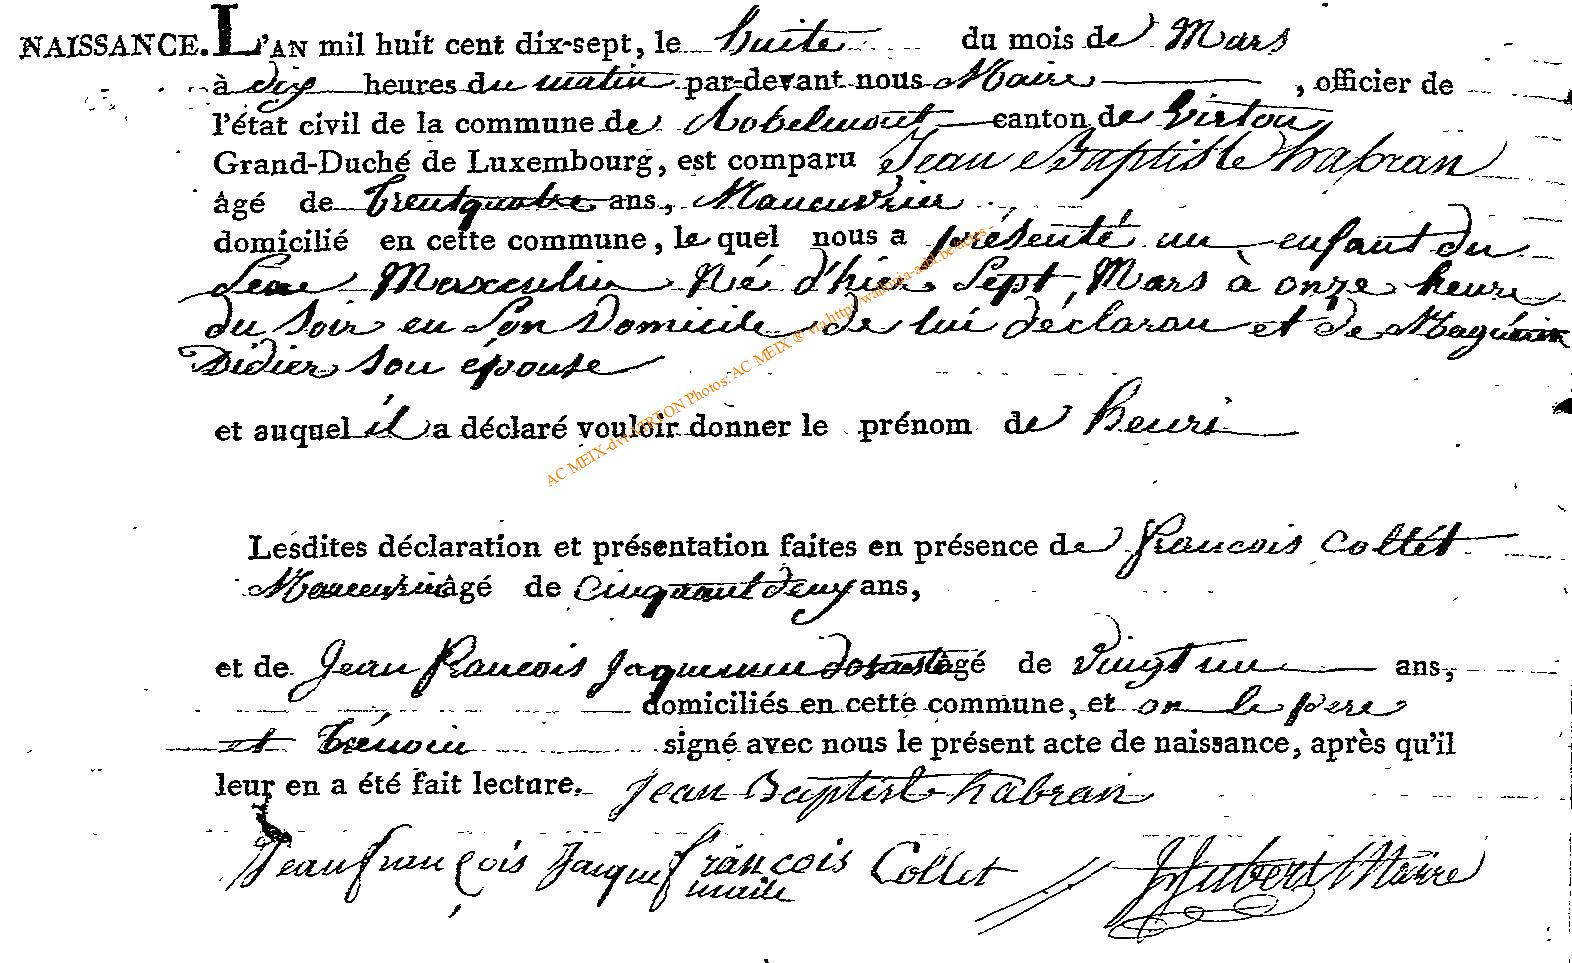 NAISSANCE. L'AN mil huit cent dix-sept, le huite du mois de Mars
à dix heures du matin par-devant nous Maire, officier de
l'état civil de la commune de Robelmont canton de Virton
Grand-Duché de Luxembourg, est comparu Jean Baptiste habran
âgé de trentquatre ans, Maneuvrier
domicilié en cette commune, le quel nous a présenté un enfant du
Sexe Masculin Né d'hier Sept Mars à onze heure
du Soir en Son Domicile de lui déclaran et de
Didier son épouse
et auquel il a déclaré vouloir donner le prénom de henri
Lesdites déclaration et présentation faites en présence de francois Collét
Maneuvrier âgé de Cinquant deux ans,
et de Jean francois Jaquemin âgé de Vingt un ans,
domiciliés en cette commune, et on le pere
et témoin signé avec nous le présent acte de naissance, après qu'il
leur en a été fait lecture. Jean Baptiste habran
Jean françois Jacque francois Collet Hubert Maire
AC MEIX-dvt-VIRTON Photos: AC MEIX ©